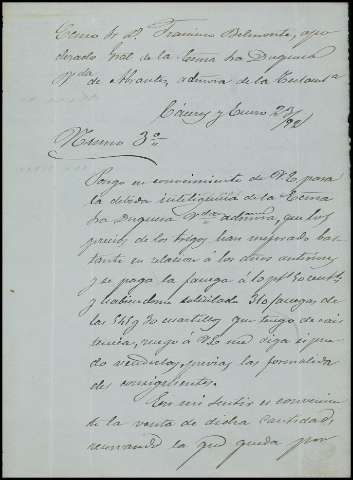 Excmo Sr Dn Francisco Belmonte, apo
derado Gral de la Excma Sra Duquesa
Vda de Abrantes, admora de la Testamta
Cáceres y Enero 23/92
Número 3o
Pongo en conocimiento de V.E. para
la debida inteligencia de la Excma
Sra Duquesa Vda admora, que los
precios de los trigos han mejorado bas
tante en relacion á los dias anteriores
y se paga la fanega á 10 pts 50 cents
y habiendome solicitado 310 fanegas, de
las 541 y 30 cuartillos que tengo de exis
tencia, ruego á V.E. me diga si pue
do venderlas, previas las formalida
des consiguientes.
En mi sentir es convenien
te la venta de dicha cantidad,
reservando la que queda por